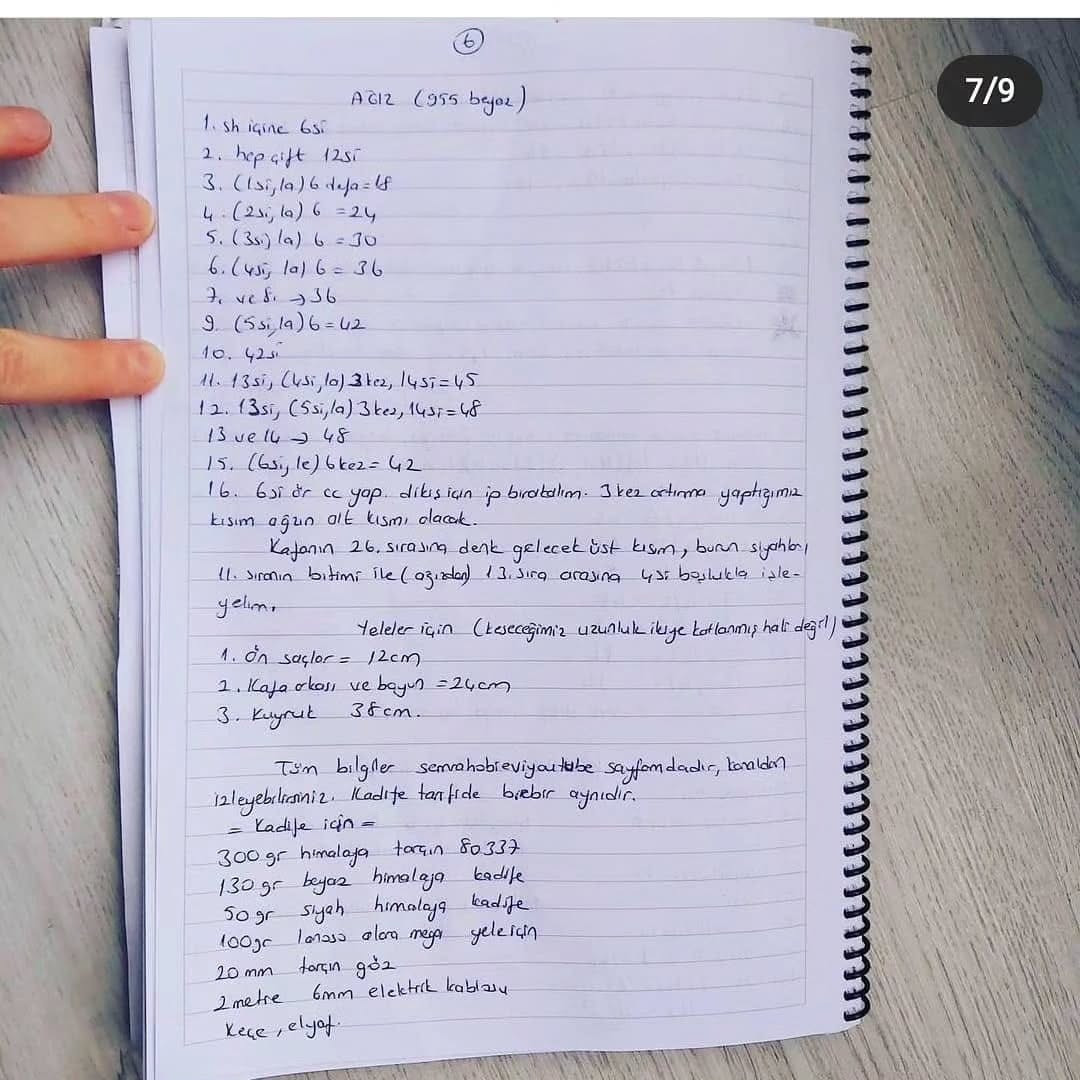 6
7/9
AĞIZ (955 beyaz)
1. sh içine 6si
2. hep çift 12si
3. (1si, 1a) 6 defa = 18
4. (2si, 1a) 6 = 24
5. (3si, 1a) 6 = 30
6. (4si, 1a) 6 = 36
7. ve 8. → 36
9. (5si, 1a) 6 = 42
10. 42si
11. 13si, (4si, 1a) 3 kez, 14si = 45
12. 13si, (5si, 1a) 3 kez, 14si = 48
13 ve 14 → 48
15. (6si, 1e) 6 kez = 42
16. 6si ör cc yap. dikiş için ip bırakalım. 3 kez artırma yaptığımız
kısım ağzın alt kısmı olacak.
Kafanın 26. sırasına denk gelecek üst kısım, burun siyahları
11. sıranın bitimi ile (ağızdan) 13. sıra arasına 4si boşlukla işle-
yelim.
Yeleler için (keseceğimiz uzunluk ikiye katlanmış hali değil)
1. Ön saçlar = 12cm
2. Kafa arkası ve boyun = 24cm
3. Kuyruk 38cm.
Tüm bilgiler semrahobieviyoutube sayfamdadır, kanaldan
izleyebilirsiniz. Kadife tarifide birebir aynıdır.
= Kadife için =
300 gr himalaya tarçın 80337
130 gr beyaz himalaya kadife
50 gr siyah himalaya kadife
100gr lanoso alara mega yele için
20 mm tarçın göz
2 metre 6mm elektrik kablosu
Keçe, elyaf.